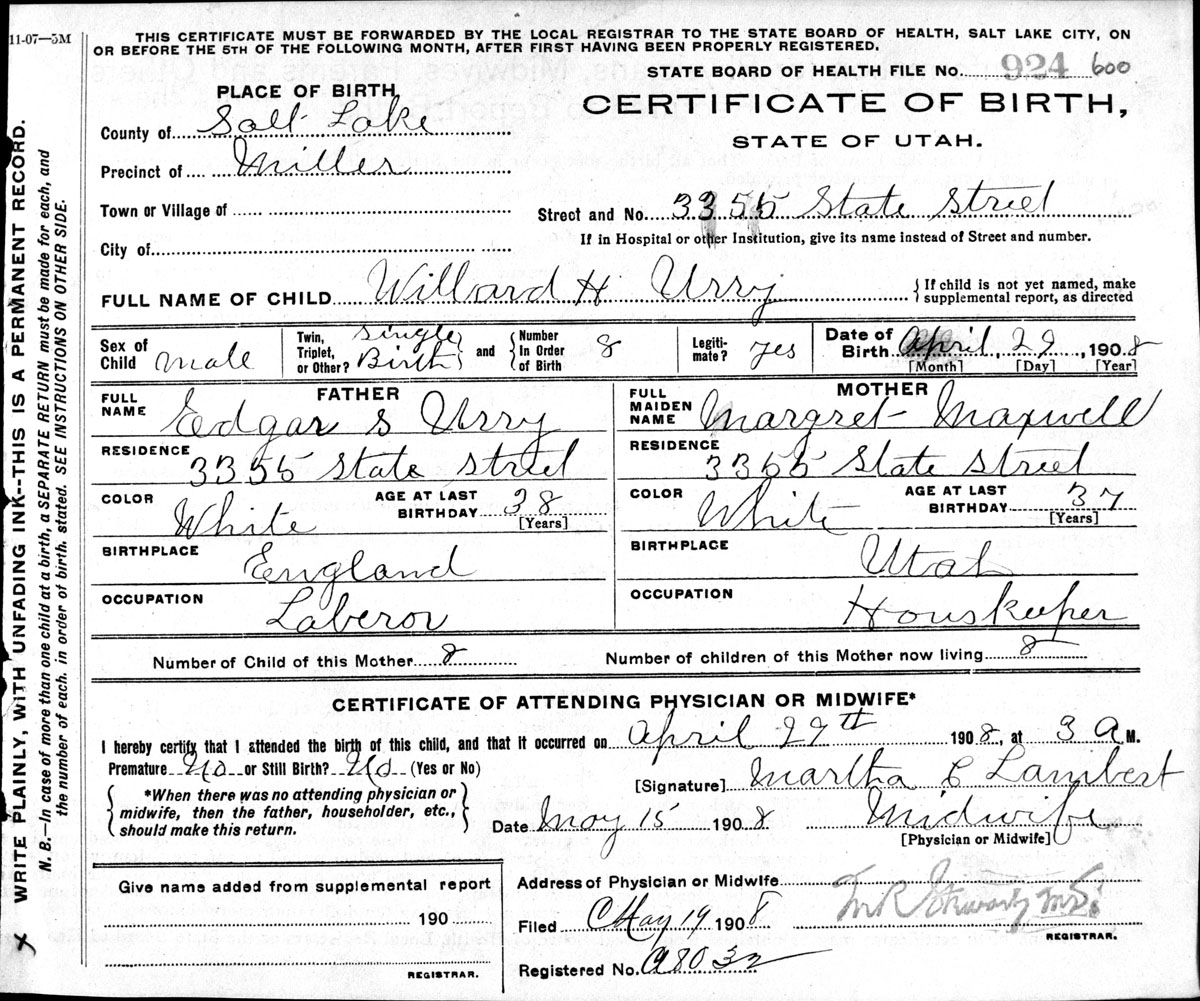 11-07—5M
THIS CERTIFICATE MUST BE FORWARDED BY THE LOCAL REGISTRAR TO THE STATE BOARD OF HEALTH, SALT LAKE CITY, ON
OR BEFORE THE 5TH OF THE FOLLOWING MONTH, AFTER FIRST HAVING BEEN PROPERLY REGISTERED.
STATE BOARD OF HEALTH FILE No. 924 600
PLACE OF BIRTH
CERTIFICATE OF BIRTH,
STATE OF UTAH.
County of Salt Lake
Precinct of Miller
Town or Village of
Street and No. 3355 State Street
If in Hospital or other Institution, give its name instead of Street and number.
City of
FULL NAME OF CHILD Willard H Urry
{ If child is not yet named, make
supplemental report, as directed
Sex of Child male
Twin, Triplet, or Other? Single Birth and { Number In Order of Birth 8
Legiti- mate? yes
Date of Birth April, 29, 1908
[Month] [Day] [Year]
FATHER
FULL NAME Edgar S Urry
RESIDENCE 3355 State Street
COLOR White
AGE AT LAST BIRTHDAY 38
[Years]
BIRTHPLACE England
OCCUPATION Laberor
MOTHER
FULL MAIDEN NAME Margret Maxwell
RESIDENCE 3355 State Street
COLOR White
AGE AT LAST BIRTHDAY 37
[Years]
BIRTHPLACE Utah
OCCUPATION Houskeeper
Number of Child of this Mother 8
Number of children of this Mother now living 8
CERTIFICATE OF ATTENDING PHYSICIAN OR MIDWIFE*
I hereby certify that I attended the birth of this child, and that it occurred on April 29th 1908, at 3 A M.
Premature No or Still Birth? No (Yes or No)
[Signature] Martha C Lambert
{ *When there was no attending physician or
midwife, then the father, householder, etc.,
should make this return. }
Date May 15 1908 Midwife
[Physician or Midwife]
Give name added from supplemental report
190
REGISTRAR.
Address of Physician or Midwife
Filed May 19 1908
REGISTRAR.
Registered No. A8032
X WRITE PLAINLY, WITH UNFADING INK--THIS IS A PERMANENT RECORD.
N. B.—In case of more than one child at a birth, a SEPARATE RETURN must be made for each, and
the number of each, in order of birth, stated. SEE INSTRUCTIONS ON OTHER SIDE.